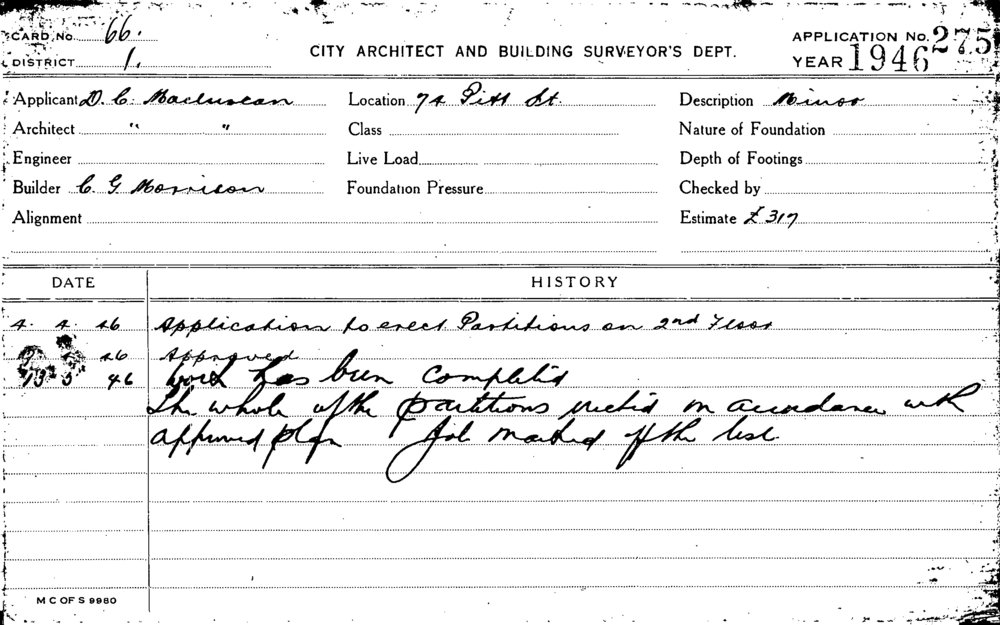 CARD No. 66.
DISTRICT 1.
CITY ARCHITECT AND BUILDING SURVEYOR'S DEPT.
APPLICATION No. 275
YEAR 1946
Applicant D. C. Maclurcan Location 74 Pitt St. Description Minor
Architect " " Class Nature of Foundation
Engineer Live Load Depth of Footings
Builder C G Morrison Foundation Pressure Checked by
Alignment Estimate £317
DATE HISTORY
4. 4. 46 Application to erect Partitions on 2nd Floor
46 Approved
13 5 46 Work has been completed
The whole of the partitions erected in accordance with
approved plan Job marked off the list
M C OF S 9980